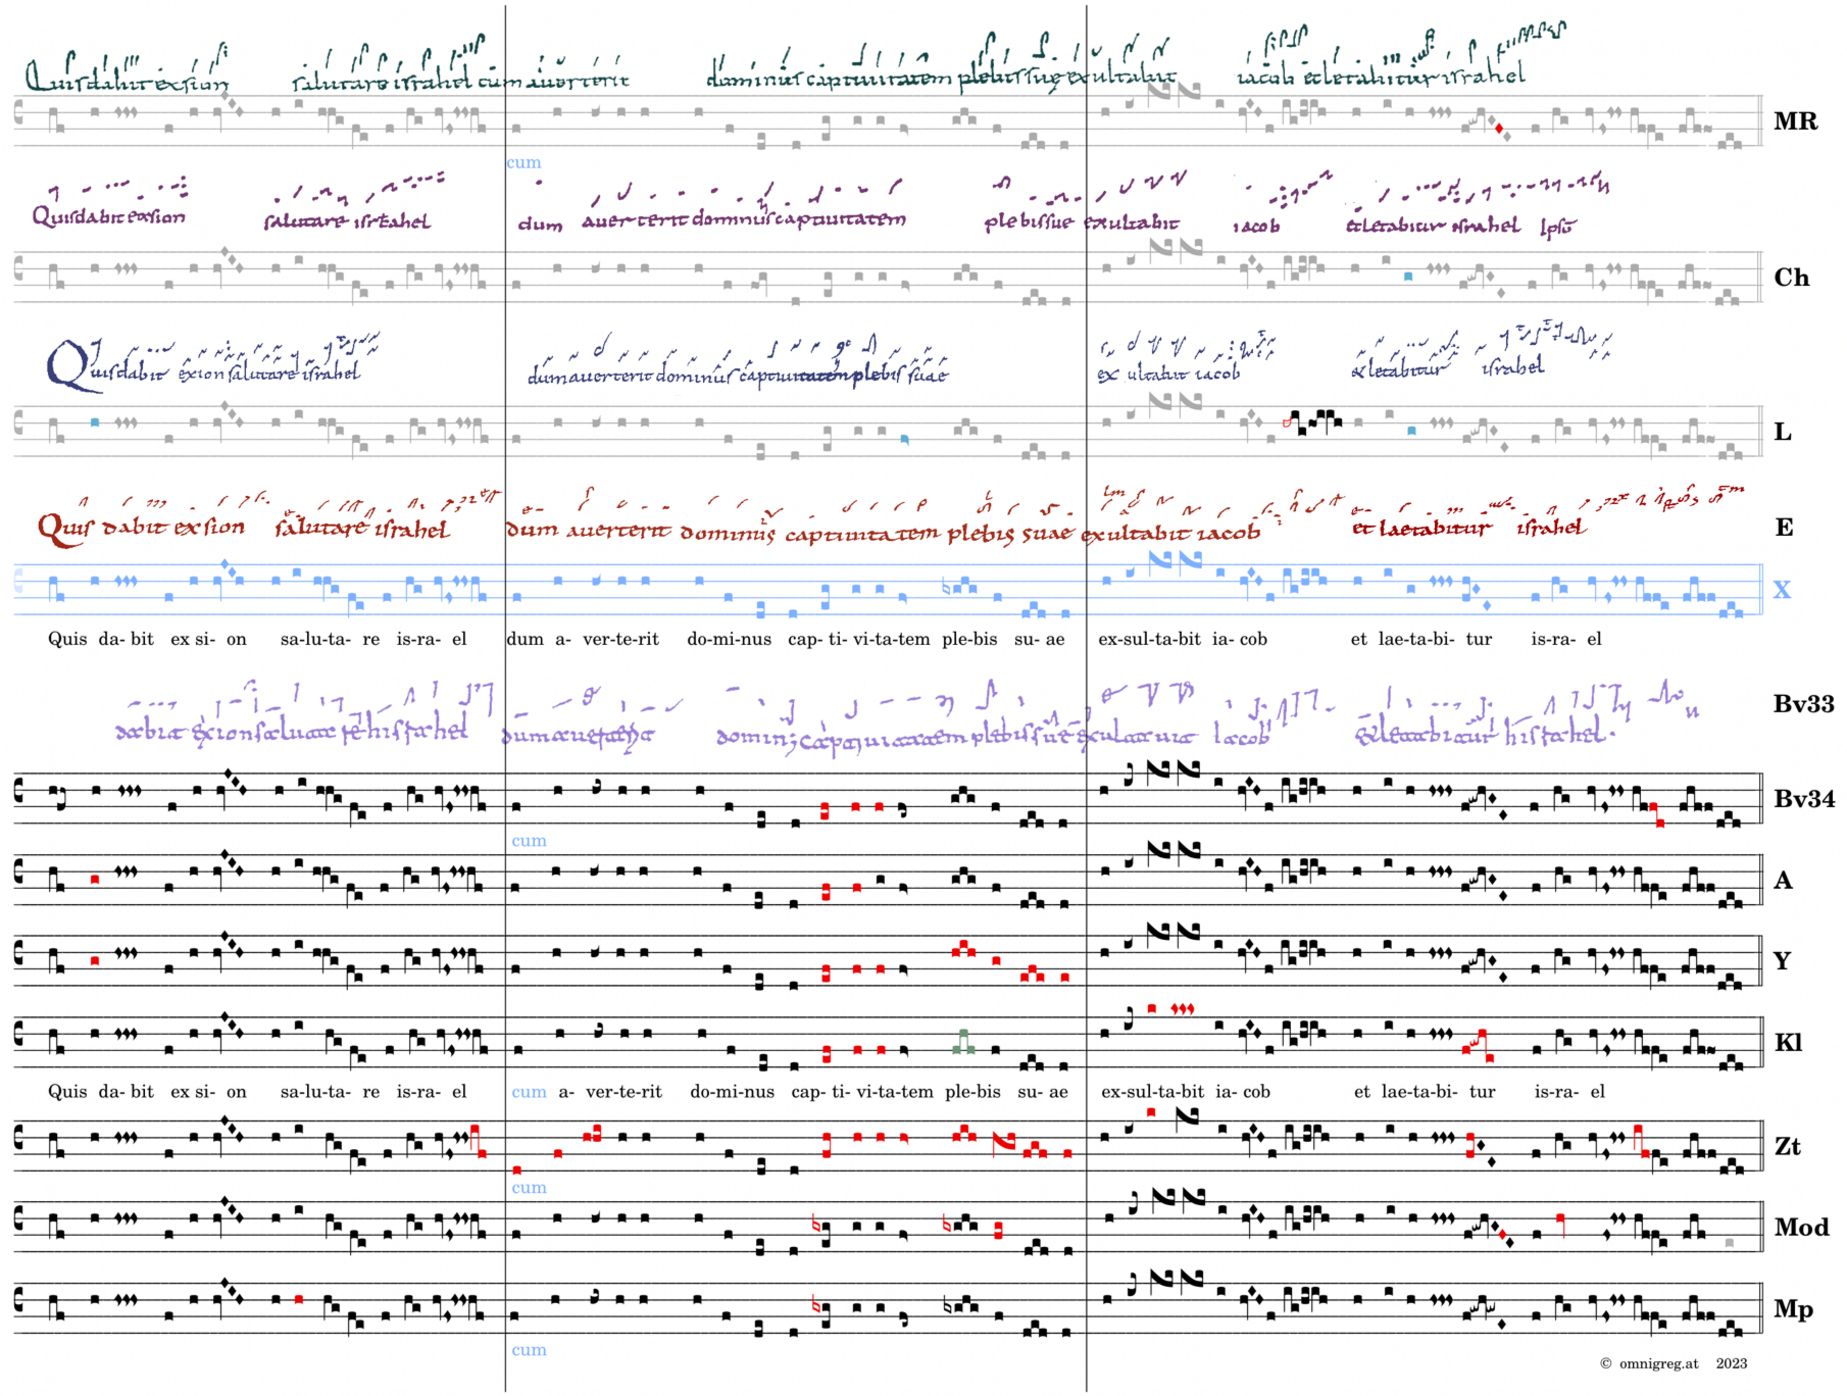 Quis dabit ex sion salutare israhel cum auerterit dominus captiuitatem plebis sue exultabit iacob et letabitur israhel
MR
cum
Quis dabit ex sion salutare israhel dum auerterit dominus captiuitatem plebis sue exultabit iacob et letabitur israhel
Ch
Quis dabit ex sion salutare israhel dum auerterit dominus captiuitatem plebis suae exultabit iacob et letabitur israhel
L
Quis dabit ex sion salutare israhel dum auerterit dominus captiuitatem plebis suae exultabit iacob et laetabitur israhel
E
X
Quis da- bit ex si- on sa-lu-ta- re is-ra- el dum a- ver-te-rit do-mi-nus cap- ti- vi-ta-tem ple-bis su- ae ex-sul-ta-bit ia- cob et lae-ta-bi- tur is-ra- el
Bv33
Bv34
cum
A
Y
Kl
Quis da- bit ex si- on sa-lu-ta- re is-ra- el cum a- ver-te-rit do-mi-nus cap- ti- vi-ta-tem ple-bis su- ae ex-sul-ta-bit ia- cob et lae-ta-bi- tur is-ra- el
Zt
cum
Mod
Mp
cum
© omnigreg.at 2023